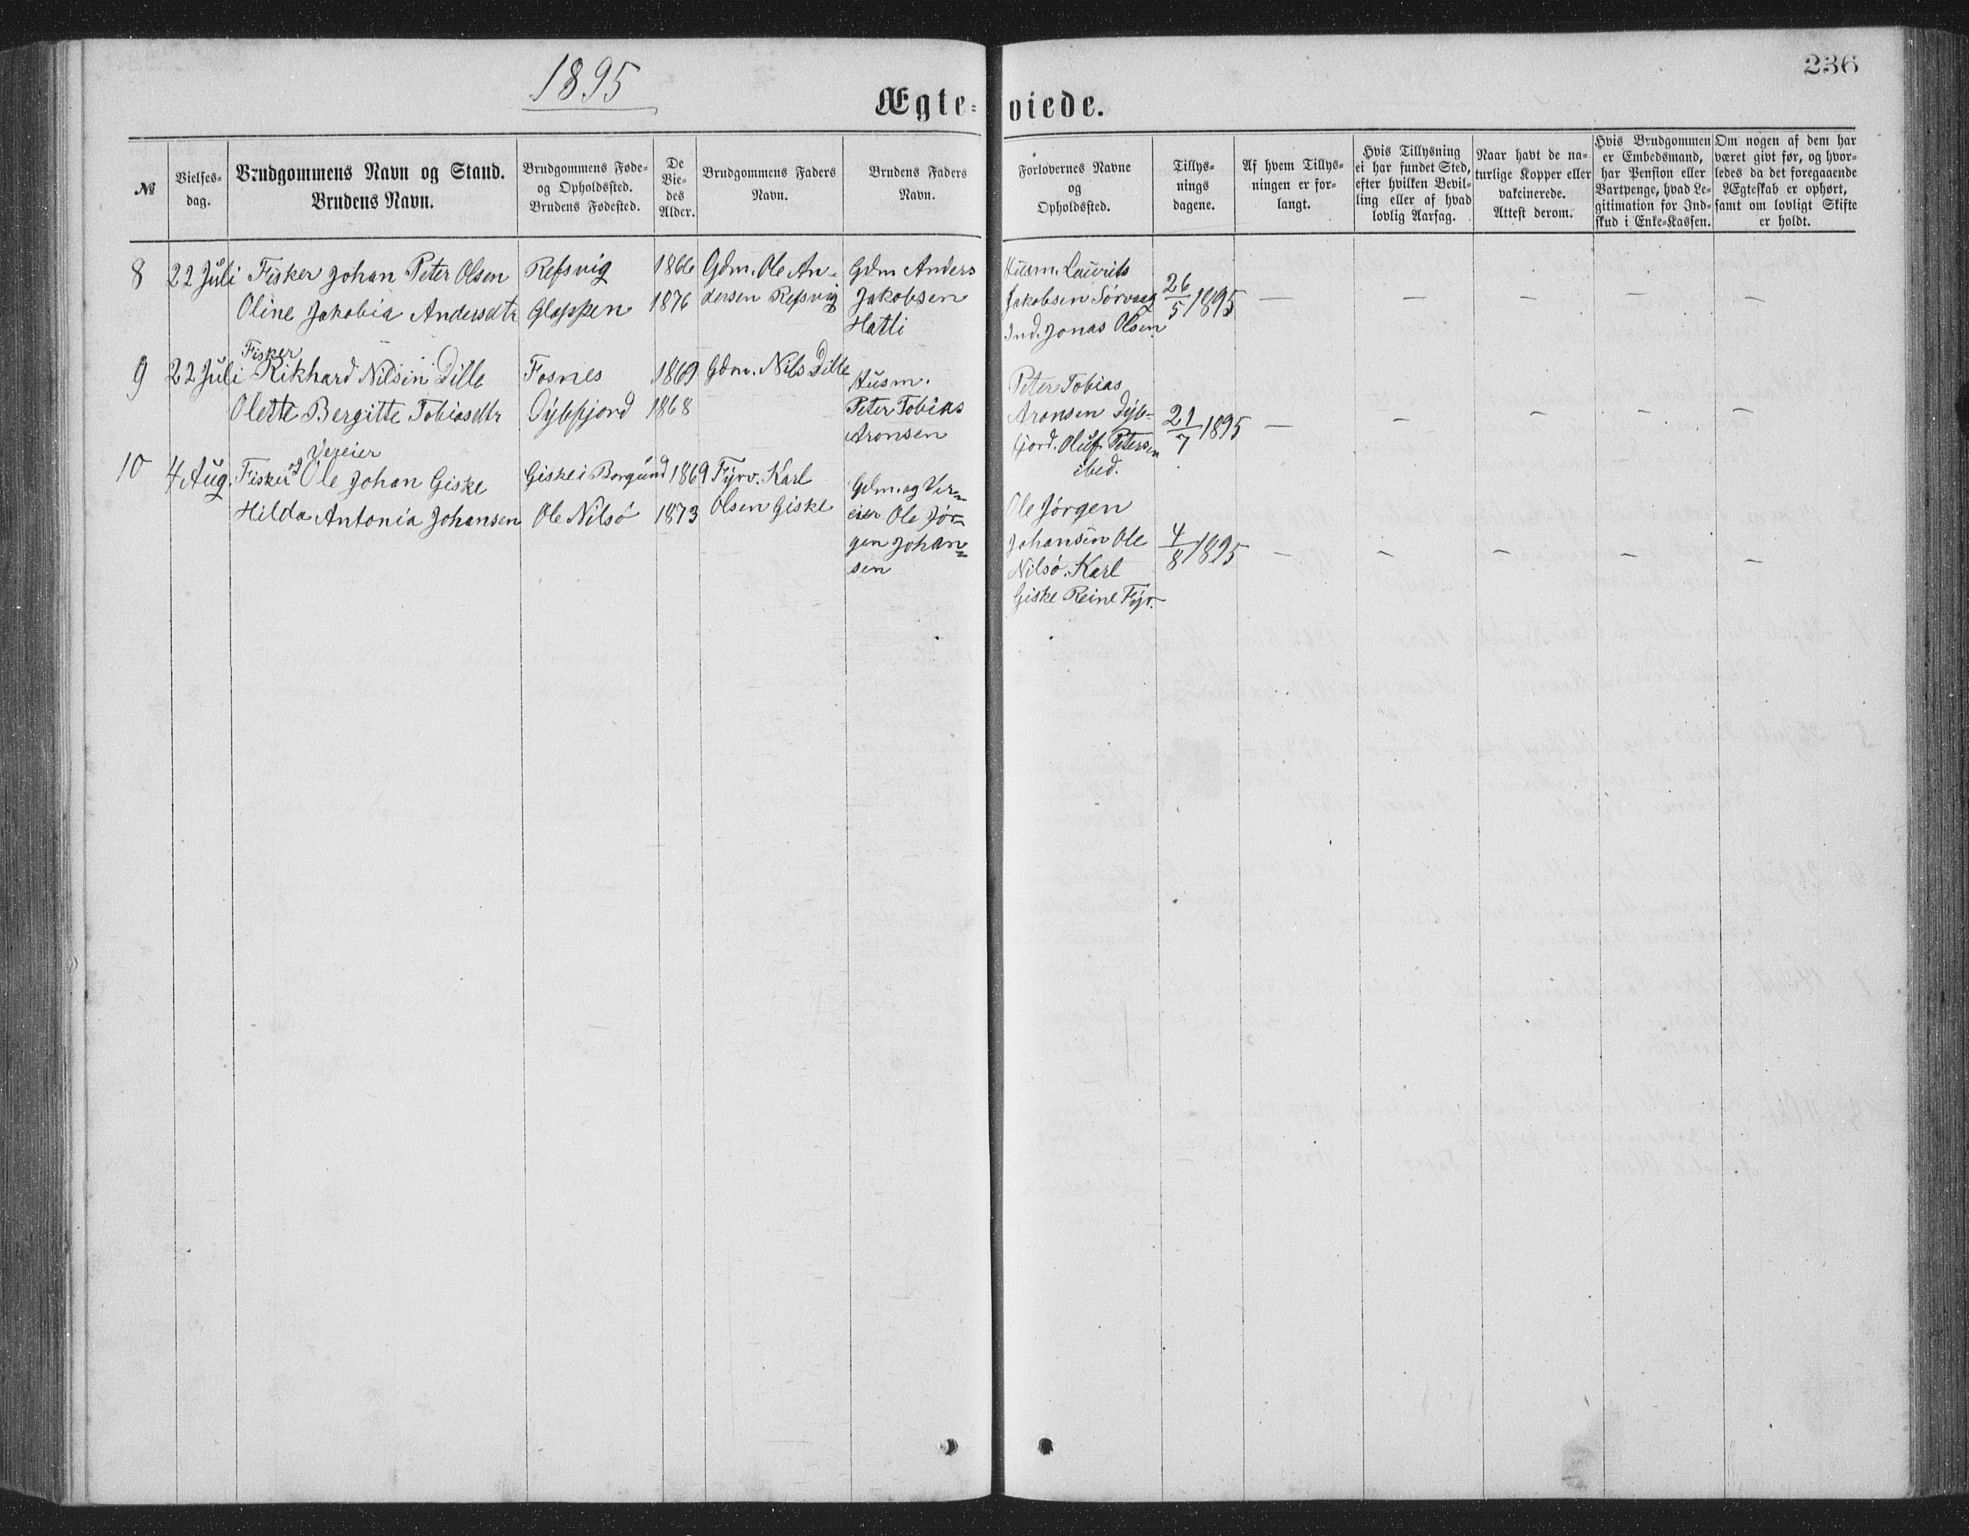 1895
236
Ægte-viede.
№
Vielses-
dag.
Brudgommens Navn og Stand.
Brudens Navn.
Brudgommens Føde-
og Opholdssted.
Brudens Fødested.
De
Vie-
des
Alder.
Brudgommens Faders
Navn.
Brudens Faders
Navn.
Forlovernes Navne
og
Opholdssted.
Tillys-
nings
dagene.
Af hvem Tillys-
ningen er for-
langt.
Hvis Tillysning
ei har fundet Sted,
efter hvilken Bevil-
ling eller af hvad
lovlig Aarsag.
Naar havt de na-
turlige Kopper eller
vakcinerede.
Attest derom.
Hvis Brudgommen
er Embedsmand,
har Pension eller
Vartpenge, hvad Le-
gitimation for Ind-
skud i Enke-Kassen.
Om nogen af dem har
været givt før, og hvor-
ledes da det foregaaende
Ægteskab er ophørt,
samt om lovligt Skifte
er holdt.
8
22 Juli
Fisker Johan Peter Olsen
Oline Jakobia Andersdtr
Refsvig
Gloppen
1866
1876
Gdm. Ole An-
dersen Refsvig
Gdm Anders
Jakobsen
Hatli
Husm. Laurits
Jakobsen Sørvaag
Ind. Jonas Olsen
26/5 1895
— — — — —
9
22 Juli
Fisker
Rikhard Nilsen Dille
Olette Bergitte Tobiasdtr
Fosnes
Dybfjord
1869
1868
Gdm. Nils Dille
Husm.
Peter Tobias
Aronsen
Peter Tobias
Aronsen Dyb-
fjord. Oluf Petersen
ibid.
21/7 1895
— — — — —
10
4 Aug.
Væreier
Fisker og Ole Johan Giske
Hilda Antonia Johansen
Giske i Borgund
Ole Nilsø
1869
1873
Fyrv. Karl
Olsen Giske
Gdm. og Vær-
eier Ole Jør-
gen Johan-
sen
Ole Jørgen
Johansen Ole
Nilsø. Karl
Giske Reine Fyr.
4/8 1895
— — — — —